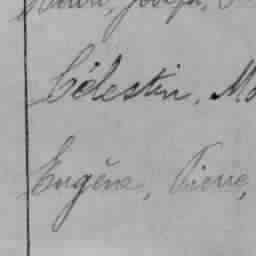 Henri, Joseph,
Célestin, Ma
Eugène, Pierre,